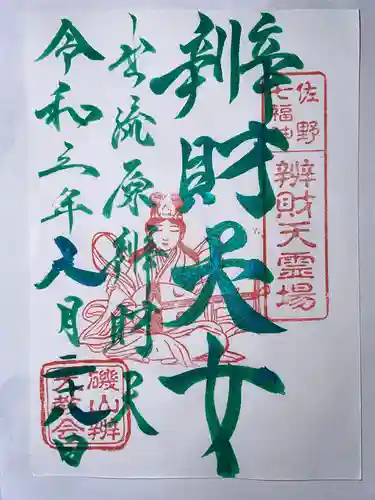 佐野
七福神
辨財天霊場
辨財天女
出流原辨財天
令和三年八月二九日
磯山辨
天教会